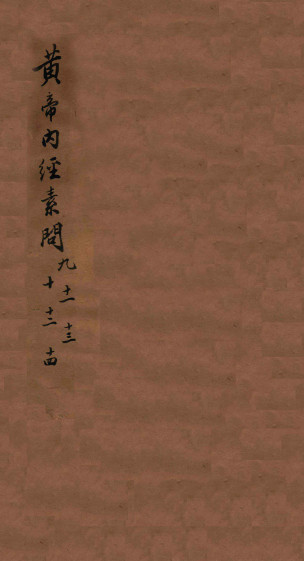 黄帝內經素問
九 十一 十三
十 十二 十四